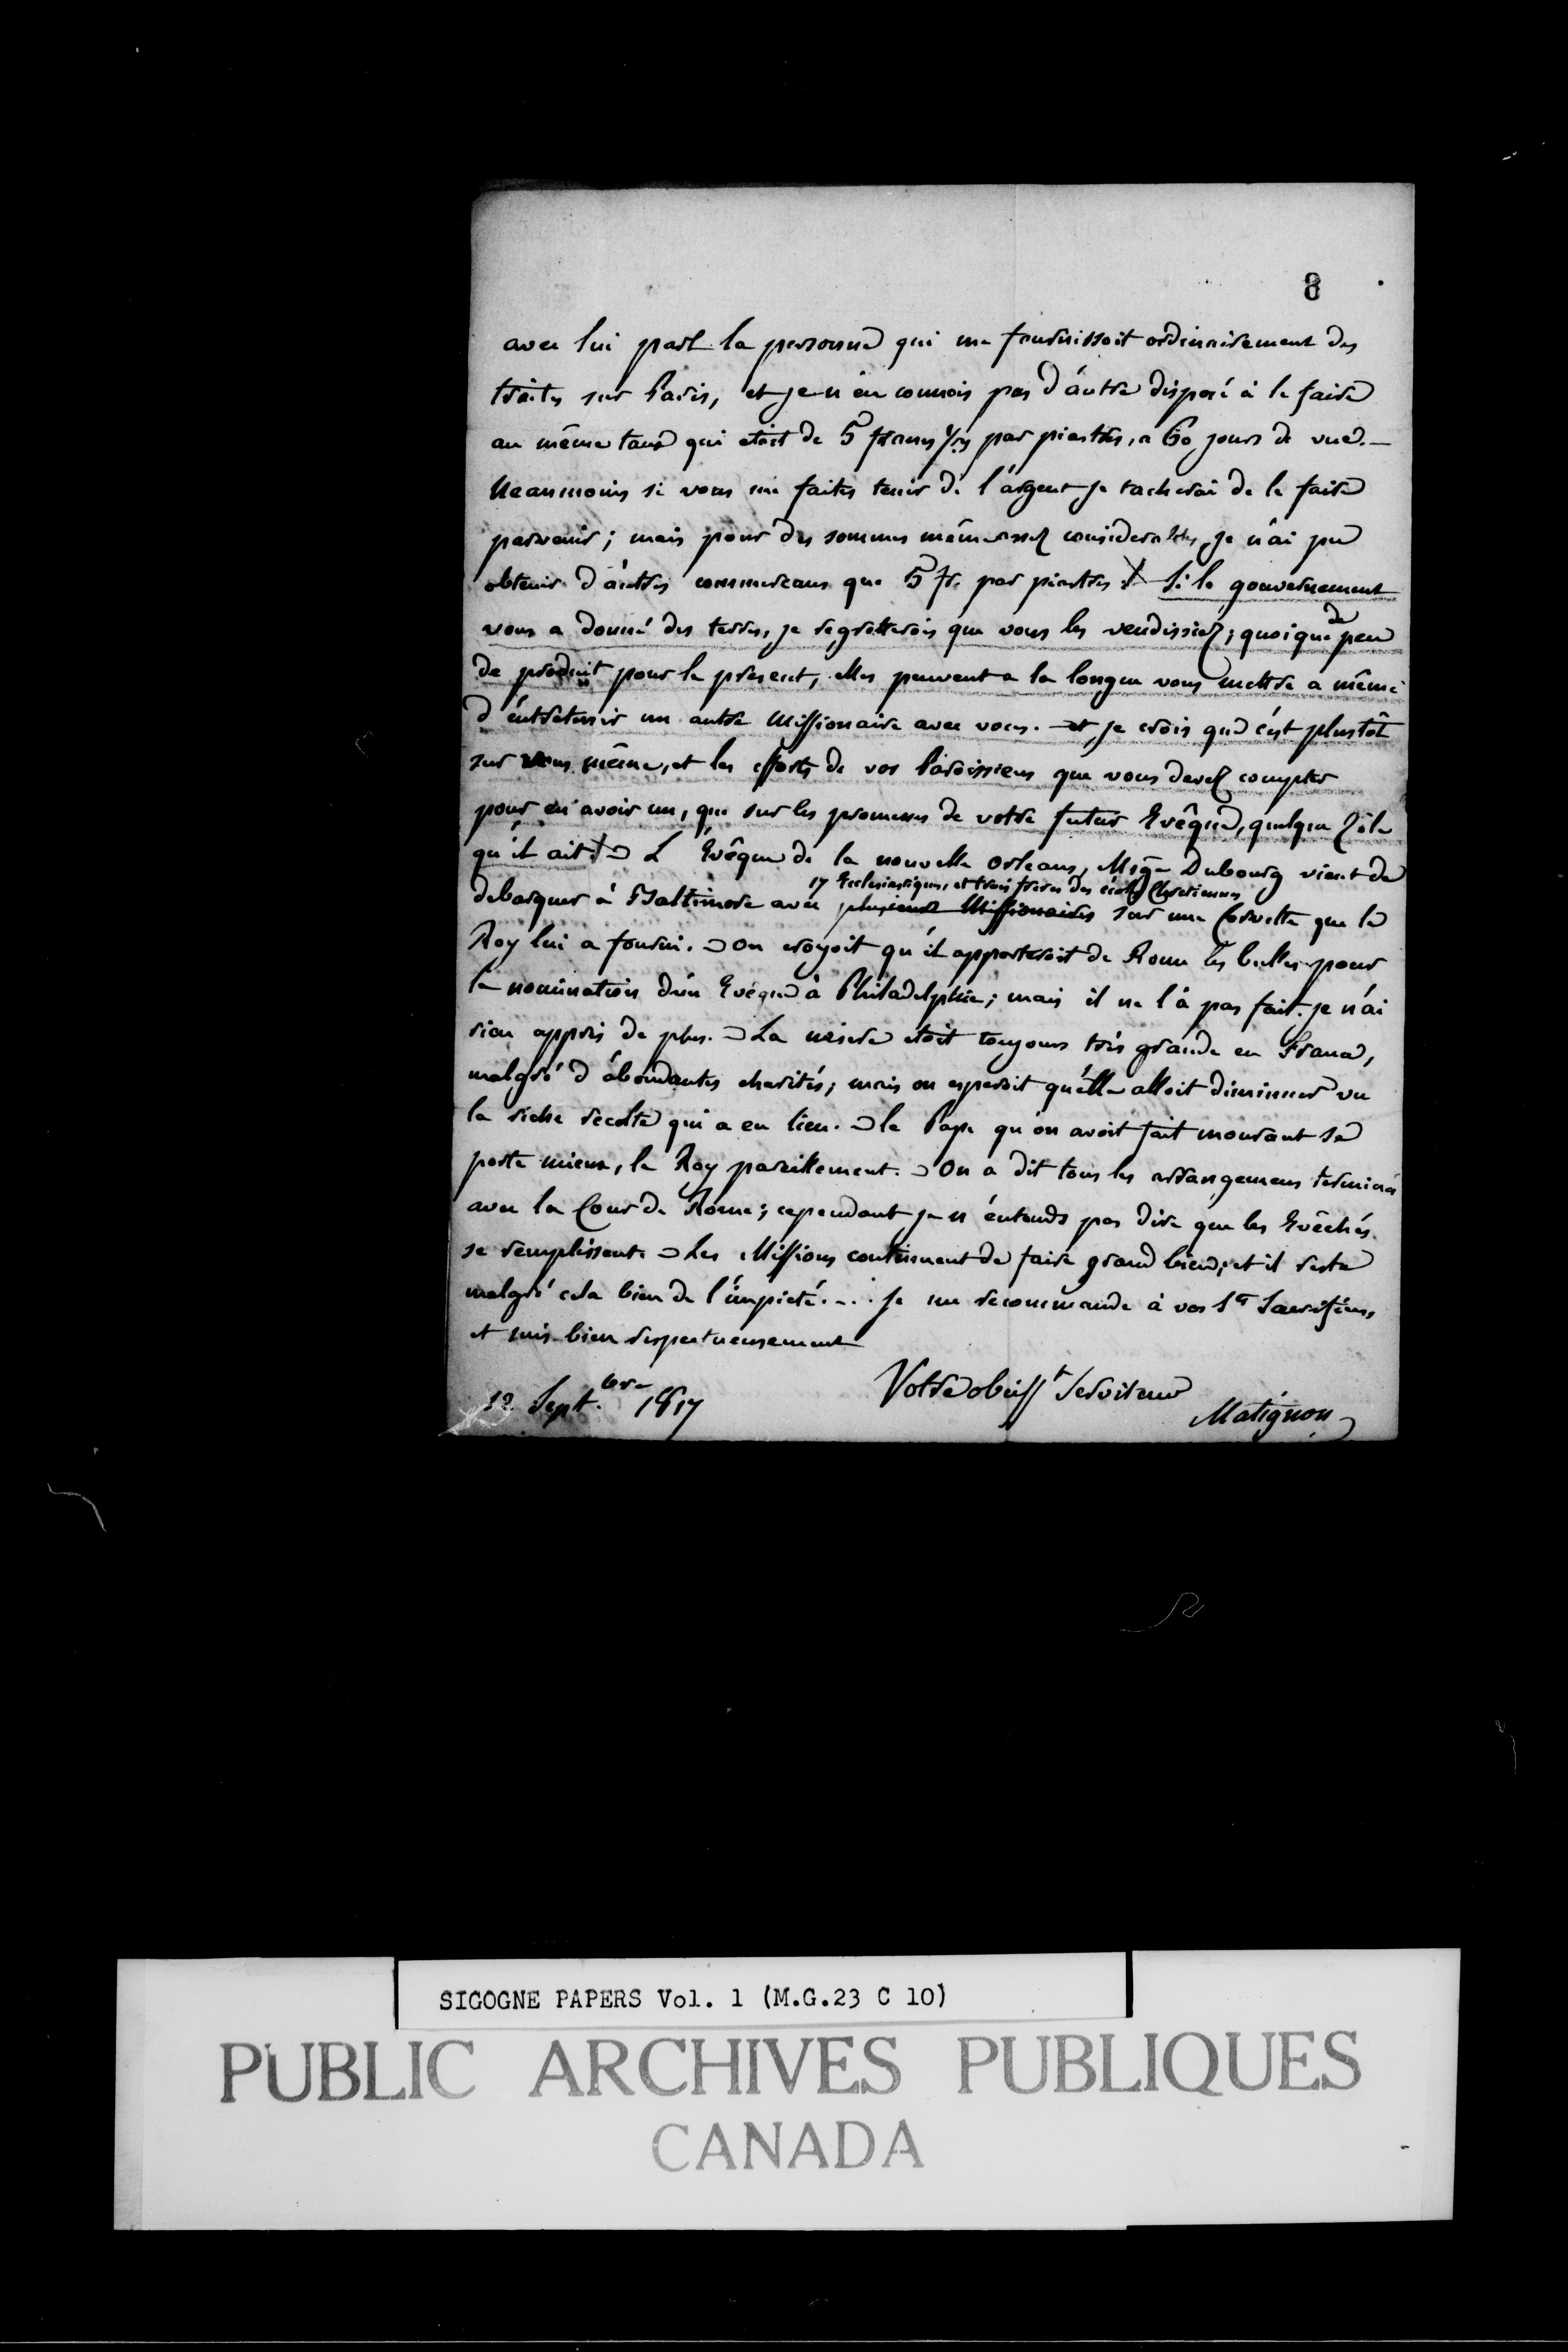 8
avec lui part la personne qui me fournissoit ordinairement des
traites sur Paris, et je n'en connois pas d'autre disposé à le faire
au même taux qui etoit de 5 francs par piastres, a 60 jours de vue. —
Neanmoins si vous me faites tenir de l'argent je tacherai de le faire
parvenir; mais pour des sommes même assez considerables, je n'ai pu
obtenir d'autres commercans que 5 fr. par piastres. Si le gouvernement
vous a donné des terres, je regretterois que vous les vendissiez; quoique de peu
de produit pour le present, elles peuvent a la longue vous mettre a même
d'entretenir un autre Missionaire avec vous. et je crois que c'est plustôt
sur vous même, et les efforts de vos Paroissiens que vous devez compter
pour en avoir un, que sur les promesses de votre futur Evêque, quelque zèle
qu'il ait. L'Evêque de la nouvelle Orleans, Mgr Dubourg vient de
17 Ecclesiastiques, et trois freres des écoles Chretiennes
debarquer à Baltimore avec plusieurs Missionaires sur une Corvette que le
Roy lui a fourni. On croyoit qu'il apporteroit de Rome les bulles pour
la nomination d'un Evêque à Philadelphie; mais il ne l'a pas fait. je n'ai
rien appris de plus. La misere etoit toujours très grande en France,
malgré d'abondantes charités; mais on esperoit qu'elle alloit diminuer vu
la riche recolte qui a eu lieu. le Pape qu'on avoit fait mourant se
porte mieux, le Roy pareillement. On a dit tous les arrangemens terminés
avec la Cour de Rome; cependant je n'entends pas dire que les Evêchés
se remplissent. Les Missions continuent de faire grand bien; et il reste
malgré cela bien de l'impieté. ... Je me recommande à vos Sts Sacrifices,
et suis bien respectueusement
Votre obeisst Serviteur
12 Septbre 1817
Matignon
SIGOGNE PAPERS Vol. 1 (M.G.23 C 10)
PUBLIC ARCHIVES PUBLIQUES
CANADA